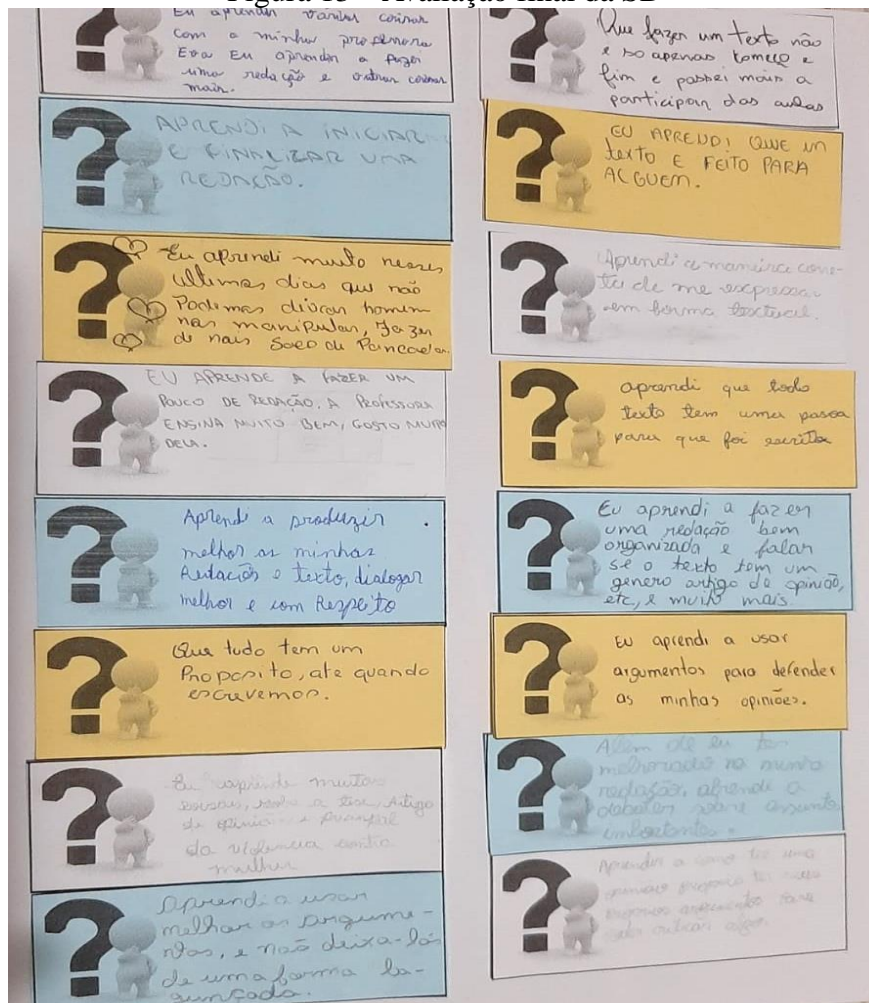 Figura 15 – Avaliação final da SD
Eu aprendi varias coisas
com a minha professora
Eva Eu aprendi a fazer
uma redação e outras coisas
mais.
APRENDI A INICIAR
E FINALIZAR UMA
REDAÇÃO.
Eu aprendi muito nesses
ultimos dias que não
Podemos deixar homem
nos manipular, fazer
de nois Saco de Pancadas.
EU APRENDE A FAZER UM
POUCO DE REDAÇÃO. A PROFESSORA
ENSINA MUITO BEM, GOSTO MUITO
DELA.
Aprendi a produzir
melhor as minhas
Redações e texto, dialogar
melhor e com Respeito
Que tudo tem um
Proposito, ate quando
escrevemos.
Eu aprende muitas
coisas, sobre a tese, Artigo
de opinião e principal
da violencia contra
mulher
Aprendi a usar
melhor os argume-
ntos, e não deixa-lós
de uma forma ba-
gunçada.
Que fazer um texto não
e so apenas começo e
fim e passei mais a
participar das aulas
EU APRENDI QUE UM
texto E FEITO PARA
ALGUEM.
Aprendi a maneira corre-
ta de me expressar
em forma textual.
aprendi que todo
texto tem uma pasoa
para que foi escrito
Eu aprendi a fazer
uma redação bem
organizada e falar
se o texto tem um
genero artigo de opinião,
etc, e muito mais.
Eu aprendi a usar
argumentos para defender
as minhas opiniões.
Além de eu ter
melhorado na minha
redação, aprendi a
debater sobre assuntos
importantes.
Aprender a como ter uma
opinião
argumentos